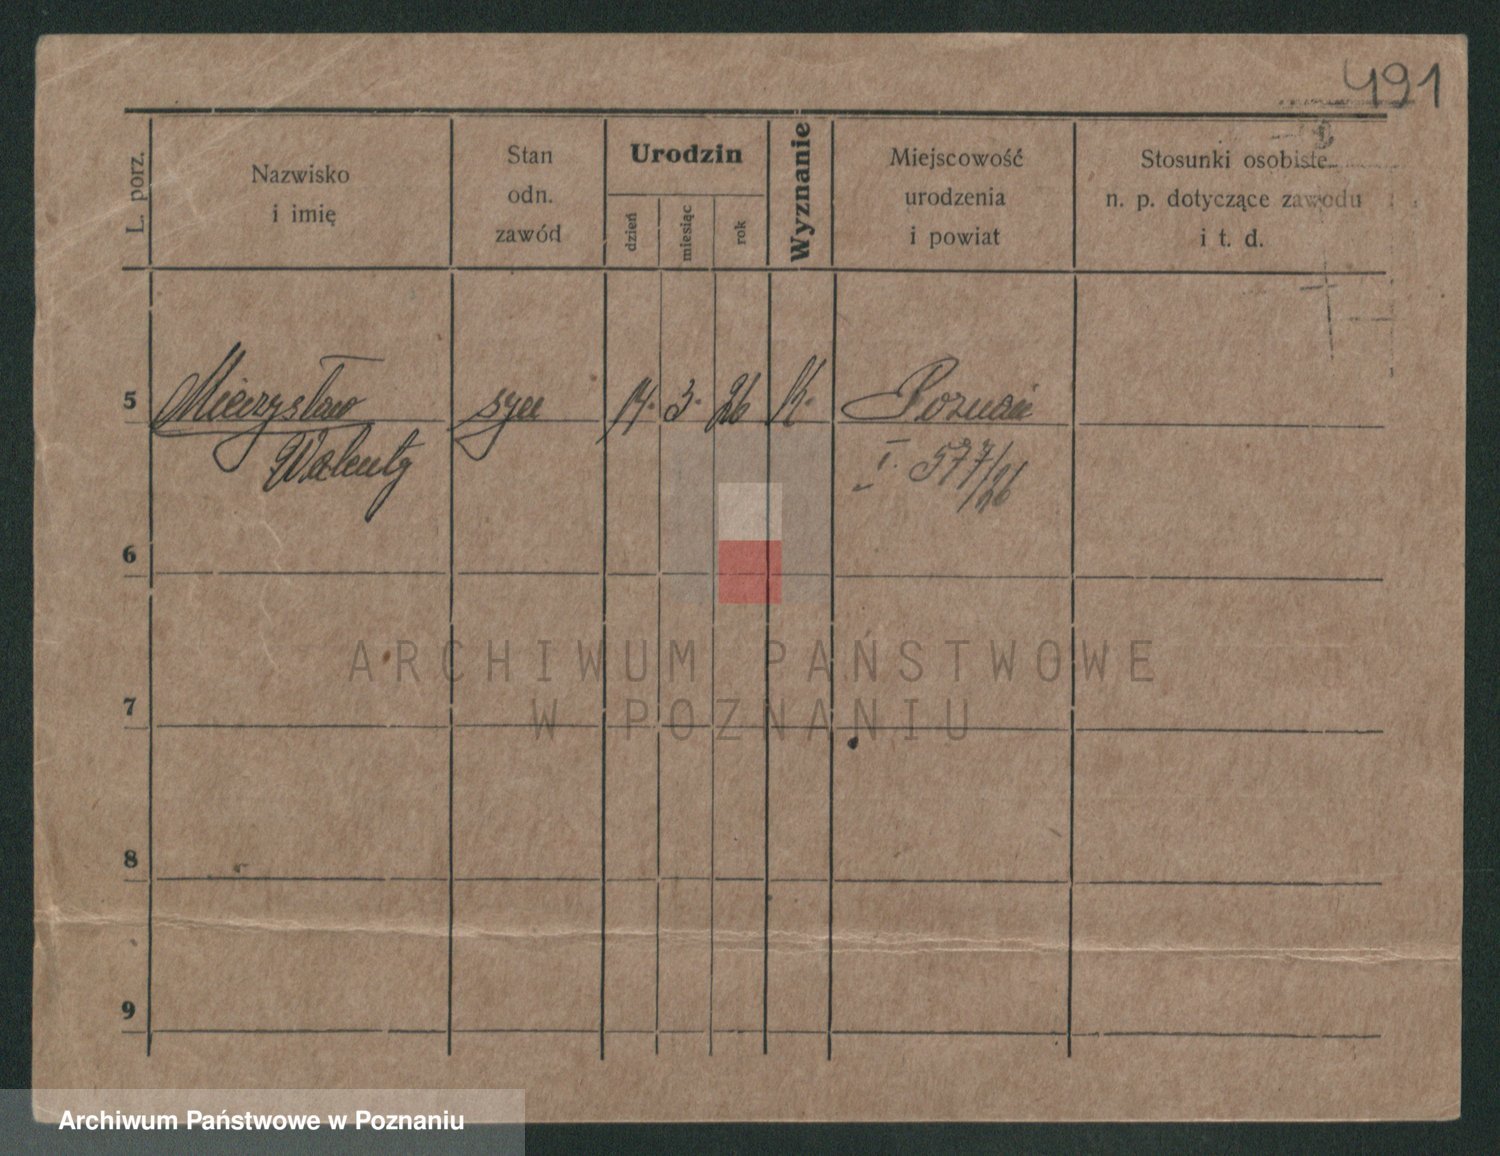 491
L. porz.
Nazwisko
i imię
Stan
odn.
zawód
Urodzin
dzień
miesiąc
rok
Wyznanie
Miejscowość
urodzenia
i powiat
Stosunki osobiste
n. p. dotyczące zawodu
i t. d.
5 Mieczysław syn 14. 3. 26 K. Poznań
Walenty I. 577/26
6
ARCHIWUM PAŃSTWOWE
7
W POZNANIU
8
9
Archiwum Państwowe w Poznaniu